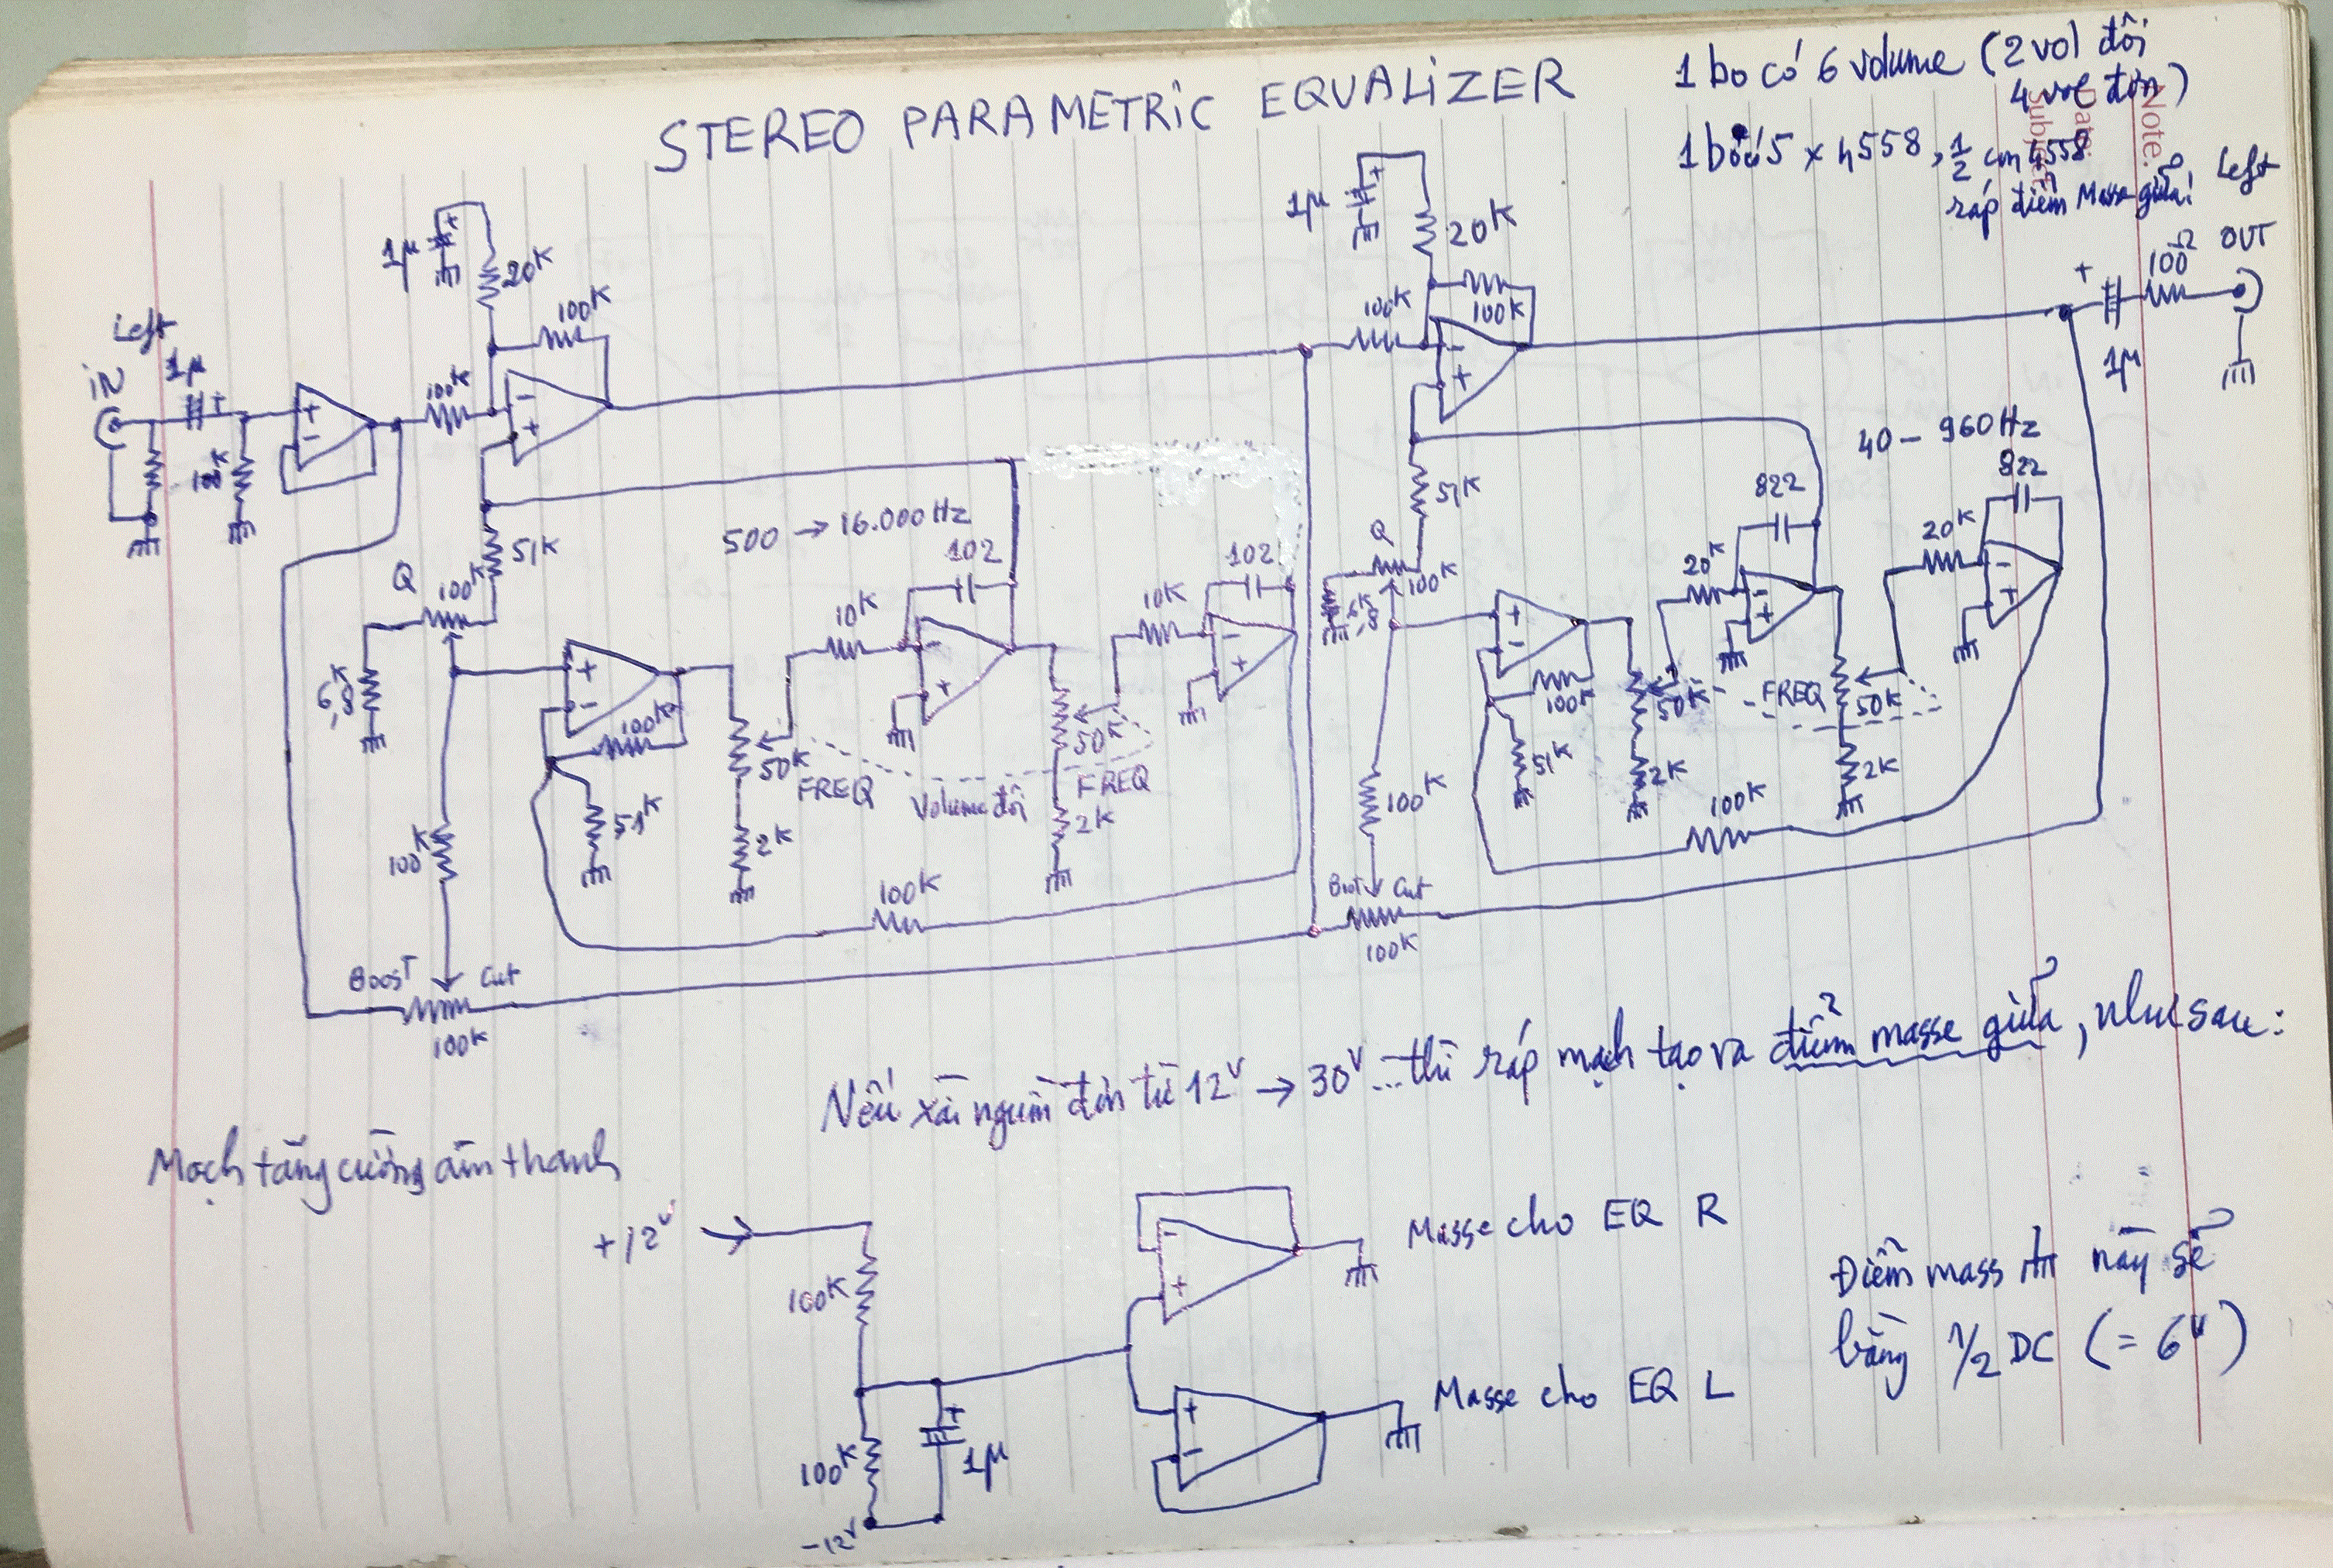 STEREO PARAMETRIC EQUALIZER
1 bo có 6 volume (2 vol đôi
4 vol đơn)
1 bộ có 5 x 4558, 1/2 con 4558
ráp điểm Masse giữa!
Note.
Left
OUT
100Ω
+
1µ
Left
IN
1µ
+
1µ
+
20K
100K
100K
+
-
-
+
1µ
+
20K
100K
100K
-
+
500 → 16.000 Hz
40 – 960 Hz
51K
Q
100K
6,8K
102
102
10K
10K
+
-
100K
-
+
-
+
50K
FREQ
Volume đôi
50K
FREQ
51K
2K
2K
100K
100K
Boost
Cut
100K
51K
Q
100K
6,8K
822
822
20K
20K
+
-
100K
-
+
-
+
50K
FREQ
50K
51K
2K
2K
100K
100K
Boost
Cut
100K
Nếu xài nguồn đơn từ 12V → 30V ... thì ráp mạch tạo ra điểm masse giữa, như sau:
Mạch tăng cường âm thanh
+12V
100K
100K
+
1µ
-12V
-
+
+
-
Masse cho EQ R
Masse cho EQ L
Điểm mass này sẽ
bằng 1/2 DC (= 6V)